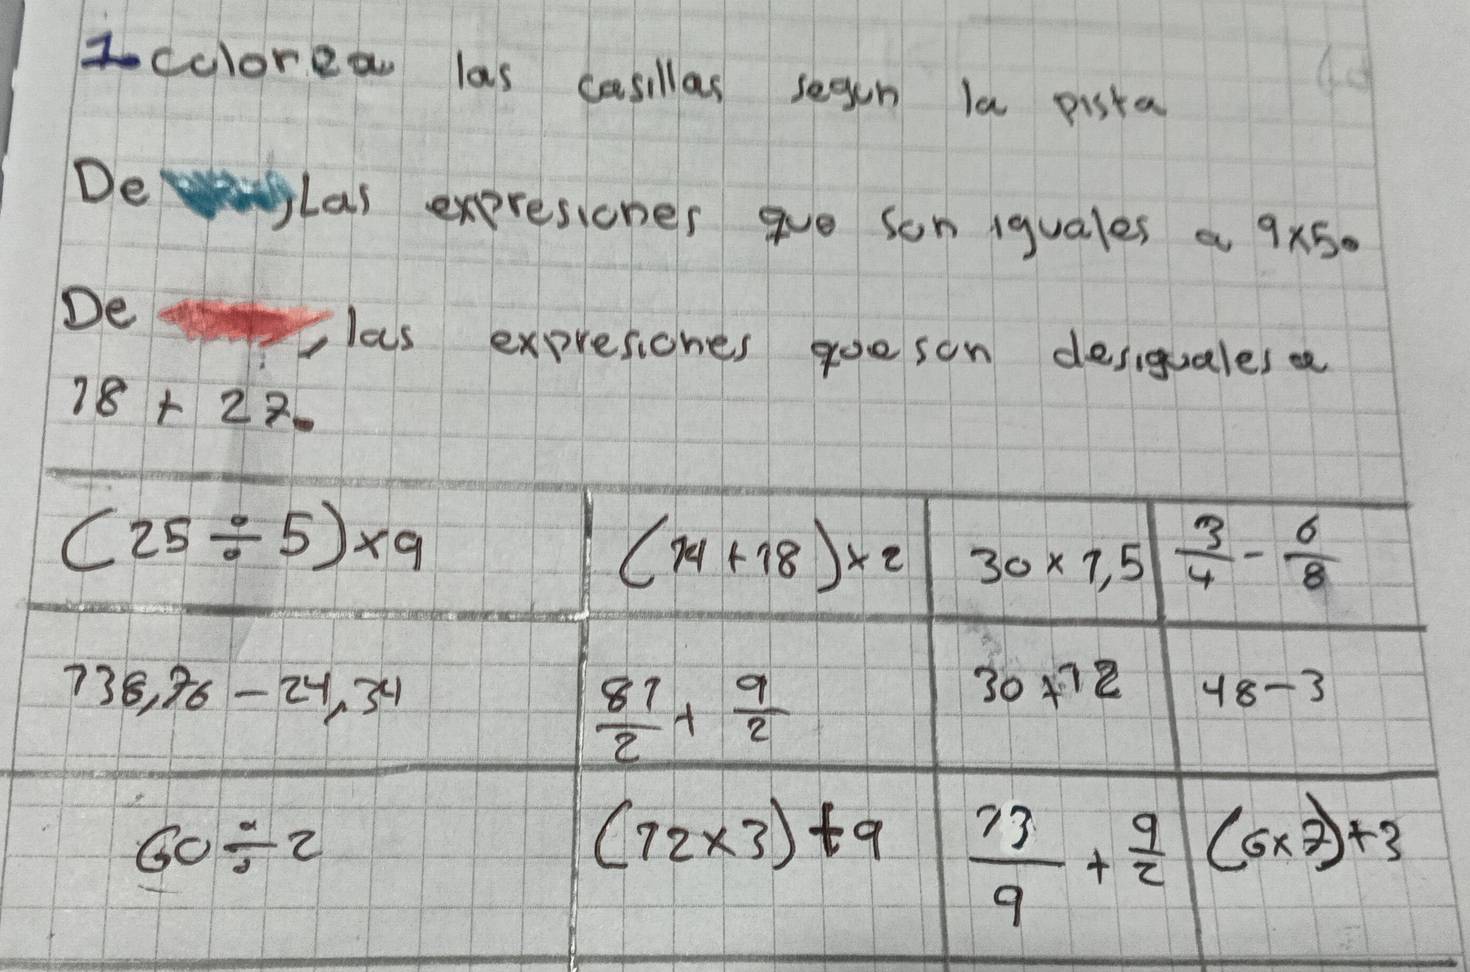 1. colorea las casillas segun la pista
De , Las expresiones que son iguales a 9x5.
De , las expresiones que son desiguales a
18 + 27.
(25 ÷ 5) x 9 (14 + 18) x 2 30 x 1,5 3/4 - 6/8
138,76 - 24,34 81/2 + 9/2 30 + 12 48 - 3
60 ÷ 2 (12 x 3) + 9 13/9 + 9/2 (6 x 7) + 3